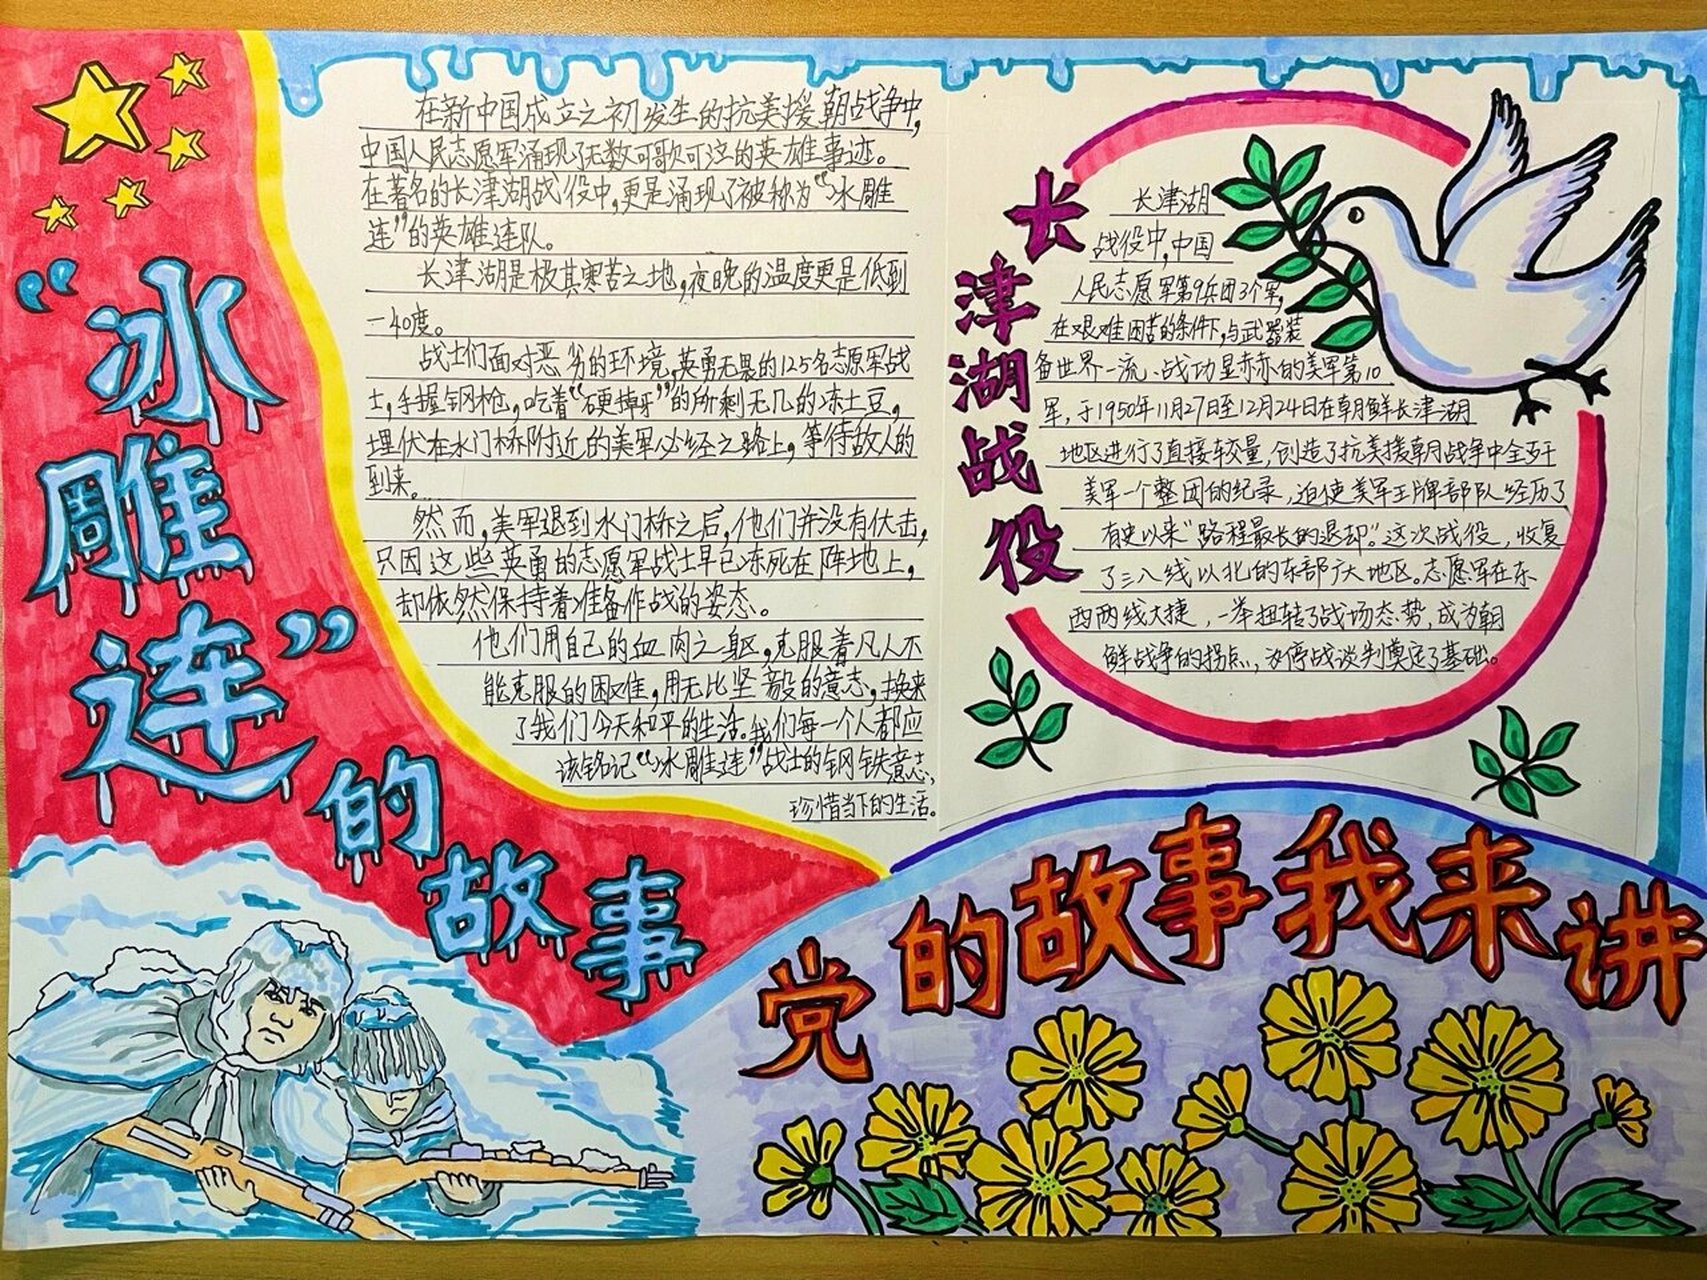 “冰
雕
连”
的
故
事
在新中国成立之初发生的抗美援朝战争中,
中国人民志愿军涌现了无数可歌可泣的英雄事迹。
在著名的长津湖战役中,更是涌现了被称为“冰雕
连”的英雄连队。
长津湖是极其寒苦之地,夜晚的温度更是低到
-40度。
战士们面对恶劣的环境,英勇无畏的125名志愿军战
士,手握钢枪,吃着“硬掉牙”的所剩无几的冻土豆,
埋伏在水门桥附近的美军必经之路上,等待敌人的
到来。
然而,美军退到水门桥之后,他们并没有伏击,
只因这些英勇的志愿军战士早已冻死在阵地上,
却依然保持着准备作战的姿态。
他们用自己的血肉之躯,克服着凡人不
能克服的困难,用无比坚毅的意志,换来
了我们今天和平的生活。我们每一个人都应
该铭记“冰雕连”战士的钢铁意志,
珍惜当下的生活。
长
津
湖
战
役
长津湖
战役中,中国
人民志愿军第9兵团3个军,
在艰难困苦的条件下,与武器装
备世界一流、战功显赫的美军第10
军,于1950年11月27日至12月24日在朝鲜长津湖
地区进行了直接较量,创造了抗美援朝战争中全歼
美军一个整团的纪录,迫使美军王牌部队经历了
有史以来“路程最长的退却”。这次战役,收复
了三八线以北的东部广大地区。志愿军在东
西两线大捷,一举扭转了战场态势,成为朝
鲜战争的拐点,为停战谈判奠定了基础。
党的故事我来讲